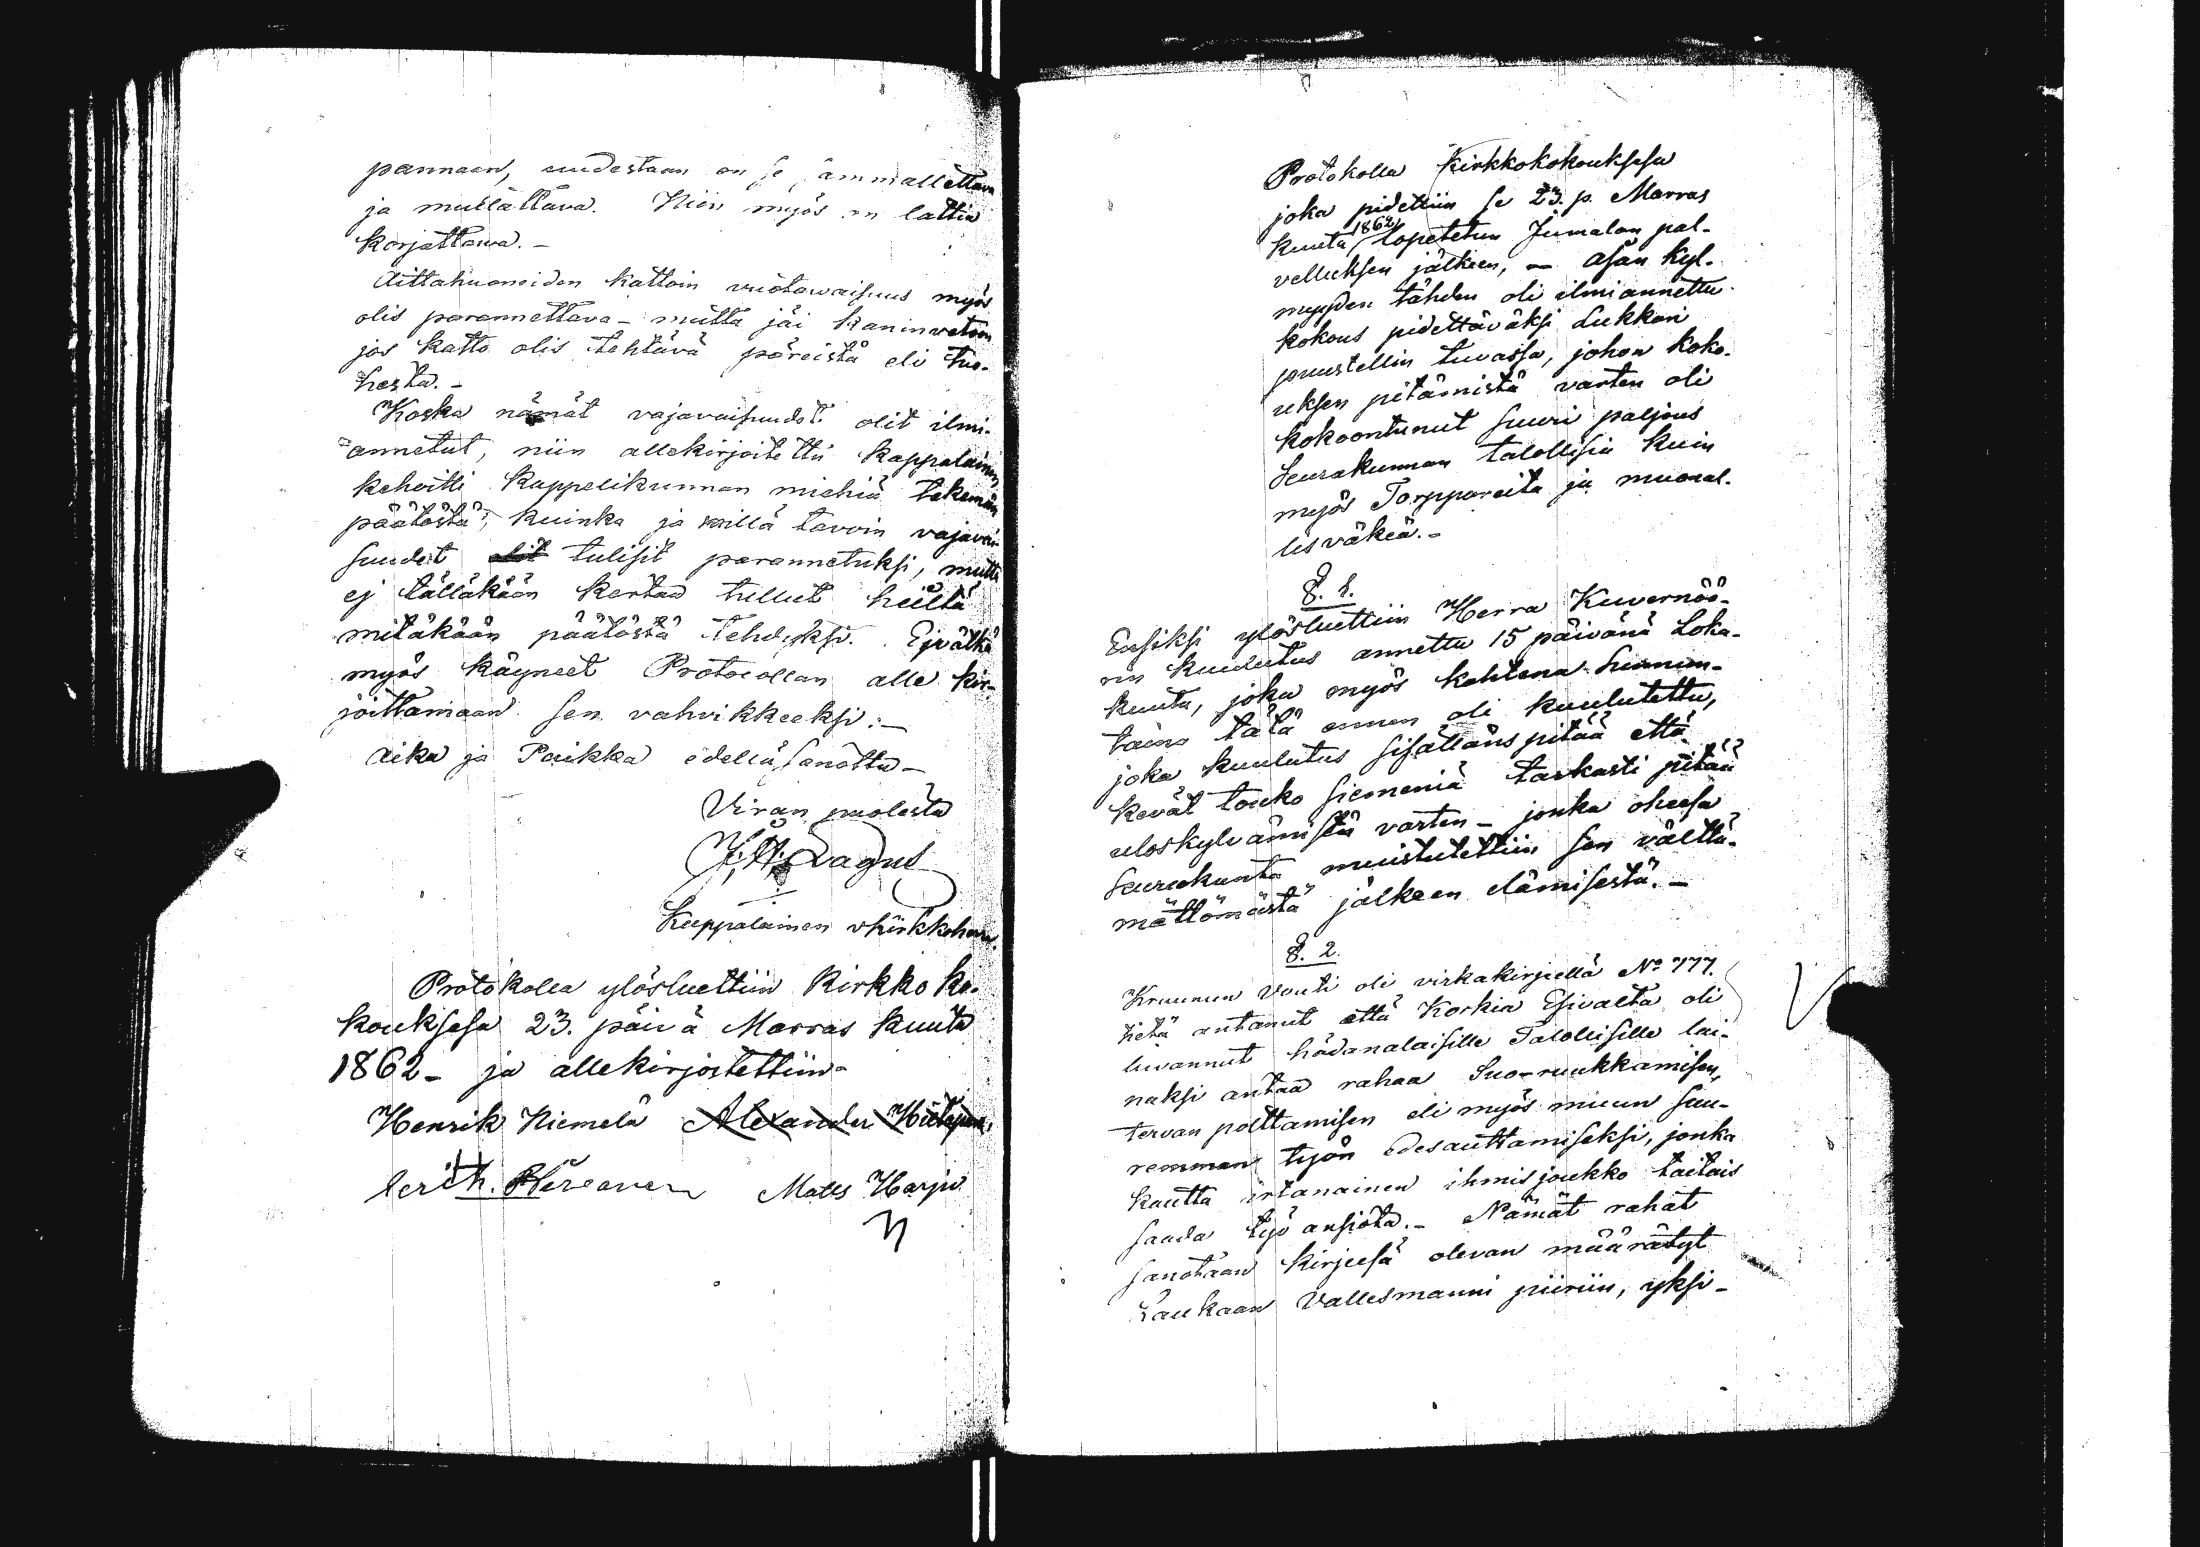 pannaan, uudestaan on se ammallettava
ja mullattava. Niin myös on lattia
korjattawa.-
Aittahuoneiden kattoin vuotawaisuus myös
olis parannettava - mutta jäi
jos katto olis tehtävä päreistä eli tuo-
hesta.-
Koska nämät vajavaisuudet olit ilmi-
annetut, niin allekirjoitettu kappalainen
kehoitti Kappelikunnan miehiä tekemän
päätöstä, kuinka ja millä tavoin vajavai
suudet olit tulisit parannetuksi, mutta
ej tälläkään kertaa tullut heiltä
mitäkään päätöstä tehdyksi. Eivätkä
myös käyneet Protocollan alle kir-
joittamaan sen vahvikkeeksi:-
Aika ja Paikka edellä sanottu-
Viran puolesta
Kappalainen
Protokolla ylösluettiin Kirkko ko-
kouksesa 23. päivä Marras kuuta
1862- ja allekirjoitettiin-
Henrik Niemelä Alexander
Matts Harju
Protokolla Kirkkokokouksesa
joka pidettiin se 23. p. Marras
kuuta 1862 lopetetun Jumalan pal-
velluksen jälkeen, - asian kyl-
myyden tähden oli ilmiannettu
kokous pidettäväksi Lukkari
puustellin tuvassa, johon koko-
uksen pitämistä varten oli
kokoontunut suuri paljous
Seurakunnan talollisia kuin
myös Torppareita ja muonal-
lisväkeä.-
§. 1.
Ensiksi ylösluettiin Herra Kuvernöö-
rin kuulutus annettu 15 päivänä Loka-
kuuta, joka myös kahtena Sunnun-
taina tätä ennen oli kuulutettu,
joka kuulutus sisälläns pitää että
kevät touko siemeniä tarkasti pitää
uloskylvämistä varten - jonka ohessa
Seurakunta muistutettiin sen välttä-
mättömästä jälkeen elämisestä.-
§. 2.
Kruunun Vouti oli virkakirjeellä No 777.
tietä antanut että Korkia Esivalta oli
luvannut hädänalaisille Talollisille lai-
naksi antaa rahaa Suo-ruukkamisen,
tervan polttamisen eli myös muun suu-
remman työn edesauttamiseksi, jonka
kautta irtanainen ihmisjoukko taitais
saada työ ansiota.- Nämät rahat
sanotaan kirjeesä olevan määrätyt
Laukaan Vallesmanni piiriin, yksi-